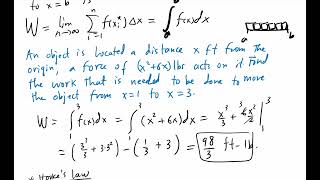 to x = b is
W = lim n→∞ n Σ i=1 f(xi*) Δx = ∫ a b f(x) dx
a b
An object is located a distance x ft from the
origin, a force of (x²+6x) lbs acts on it. Find
the work that is needed to be done to move
the object from x=1 to x=3.
W = ∫ 1 3 f(x) dx = ∫ 1 3 (x²+6x) dx = x³/3 + 6x²/2 | 1 3
= (3³/3 + 3·3²) - (1/3 + 3) = 98/3 ft-lb.
* Hooke's law